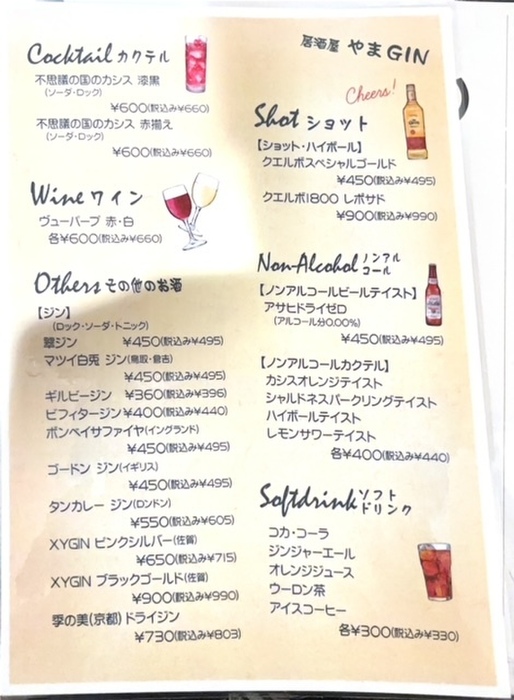 Cocktail カクテル
不思議の国のカシス 漆黒
(ソーダ・ロック)
¥600(税込み¥660)
不思議の国のカシス 赤揃え
(ソーダ・ロック)
¥600(税込み¥660)
Wine ワイン
ヴューパープ 赤・白
各¥600(税込み¥660)
Others その他のお酒
【ジン】
(ロック・ソーダ・トニック)
翠ジン ¥450(税込み¥495)
マツイ白兎 ジン(鳥取・倉吉)
¥450(税込み¥495)
ギルビージン ¥360(税込み¥396)
ビフィタージン ¥400(税込み¥440)
ボンベイサファイヤ(イングランド)
¥450(税込み¥495)
ゴードン ジン(イギリス)
¥450(税込み¥495)
タンカレー ジン(ロンドン)
¥550(税込み¥605)
XYGIN ピンクシルバー(佐賀)
¥650(税込み¥715)
XYGIN ブラックゴールド(佐賀)
¥900(税込み¥990)
季の美(京都)ドライジン
¥730(税込み¥803)
居酒屋 やまGIN
Cheers!
Shot ショット
【ショット・ハイボール】
クエルボスペシャルゴールド
¥450(税込み¥495)
クエルボ1800 レポサド
¥900(税込み¥990)
Non-Alcohol ノンアルコール
【ノンアルコールビールテイスト】
アサヒドライゼロ
(アルコール分0.00%)
¥450(税込み¥495)
【ノンアルコールカクテル】
カシスオレンジテイスト
シャルドネスパークリングテイスト
ハイボールテイスト
レモンサワーテイスト
各¥400(税込み¥440)
Softdrink ソフトドリンク
コカ・コーラ
ジンジャーエール
オレンジジュース
ウーロン茶
アイスコーヒー
各¥300(税込み¥330)